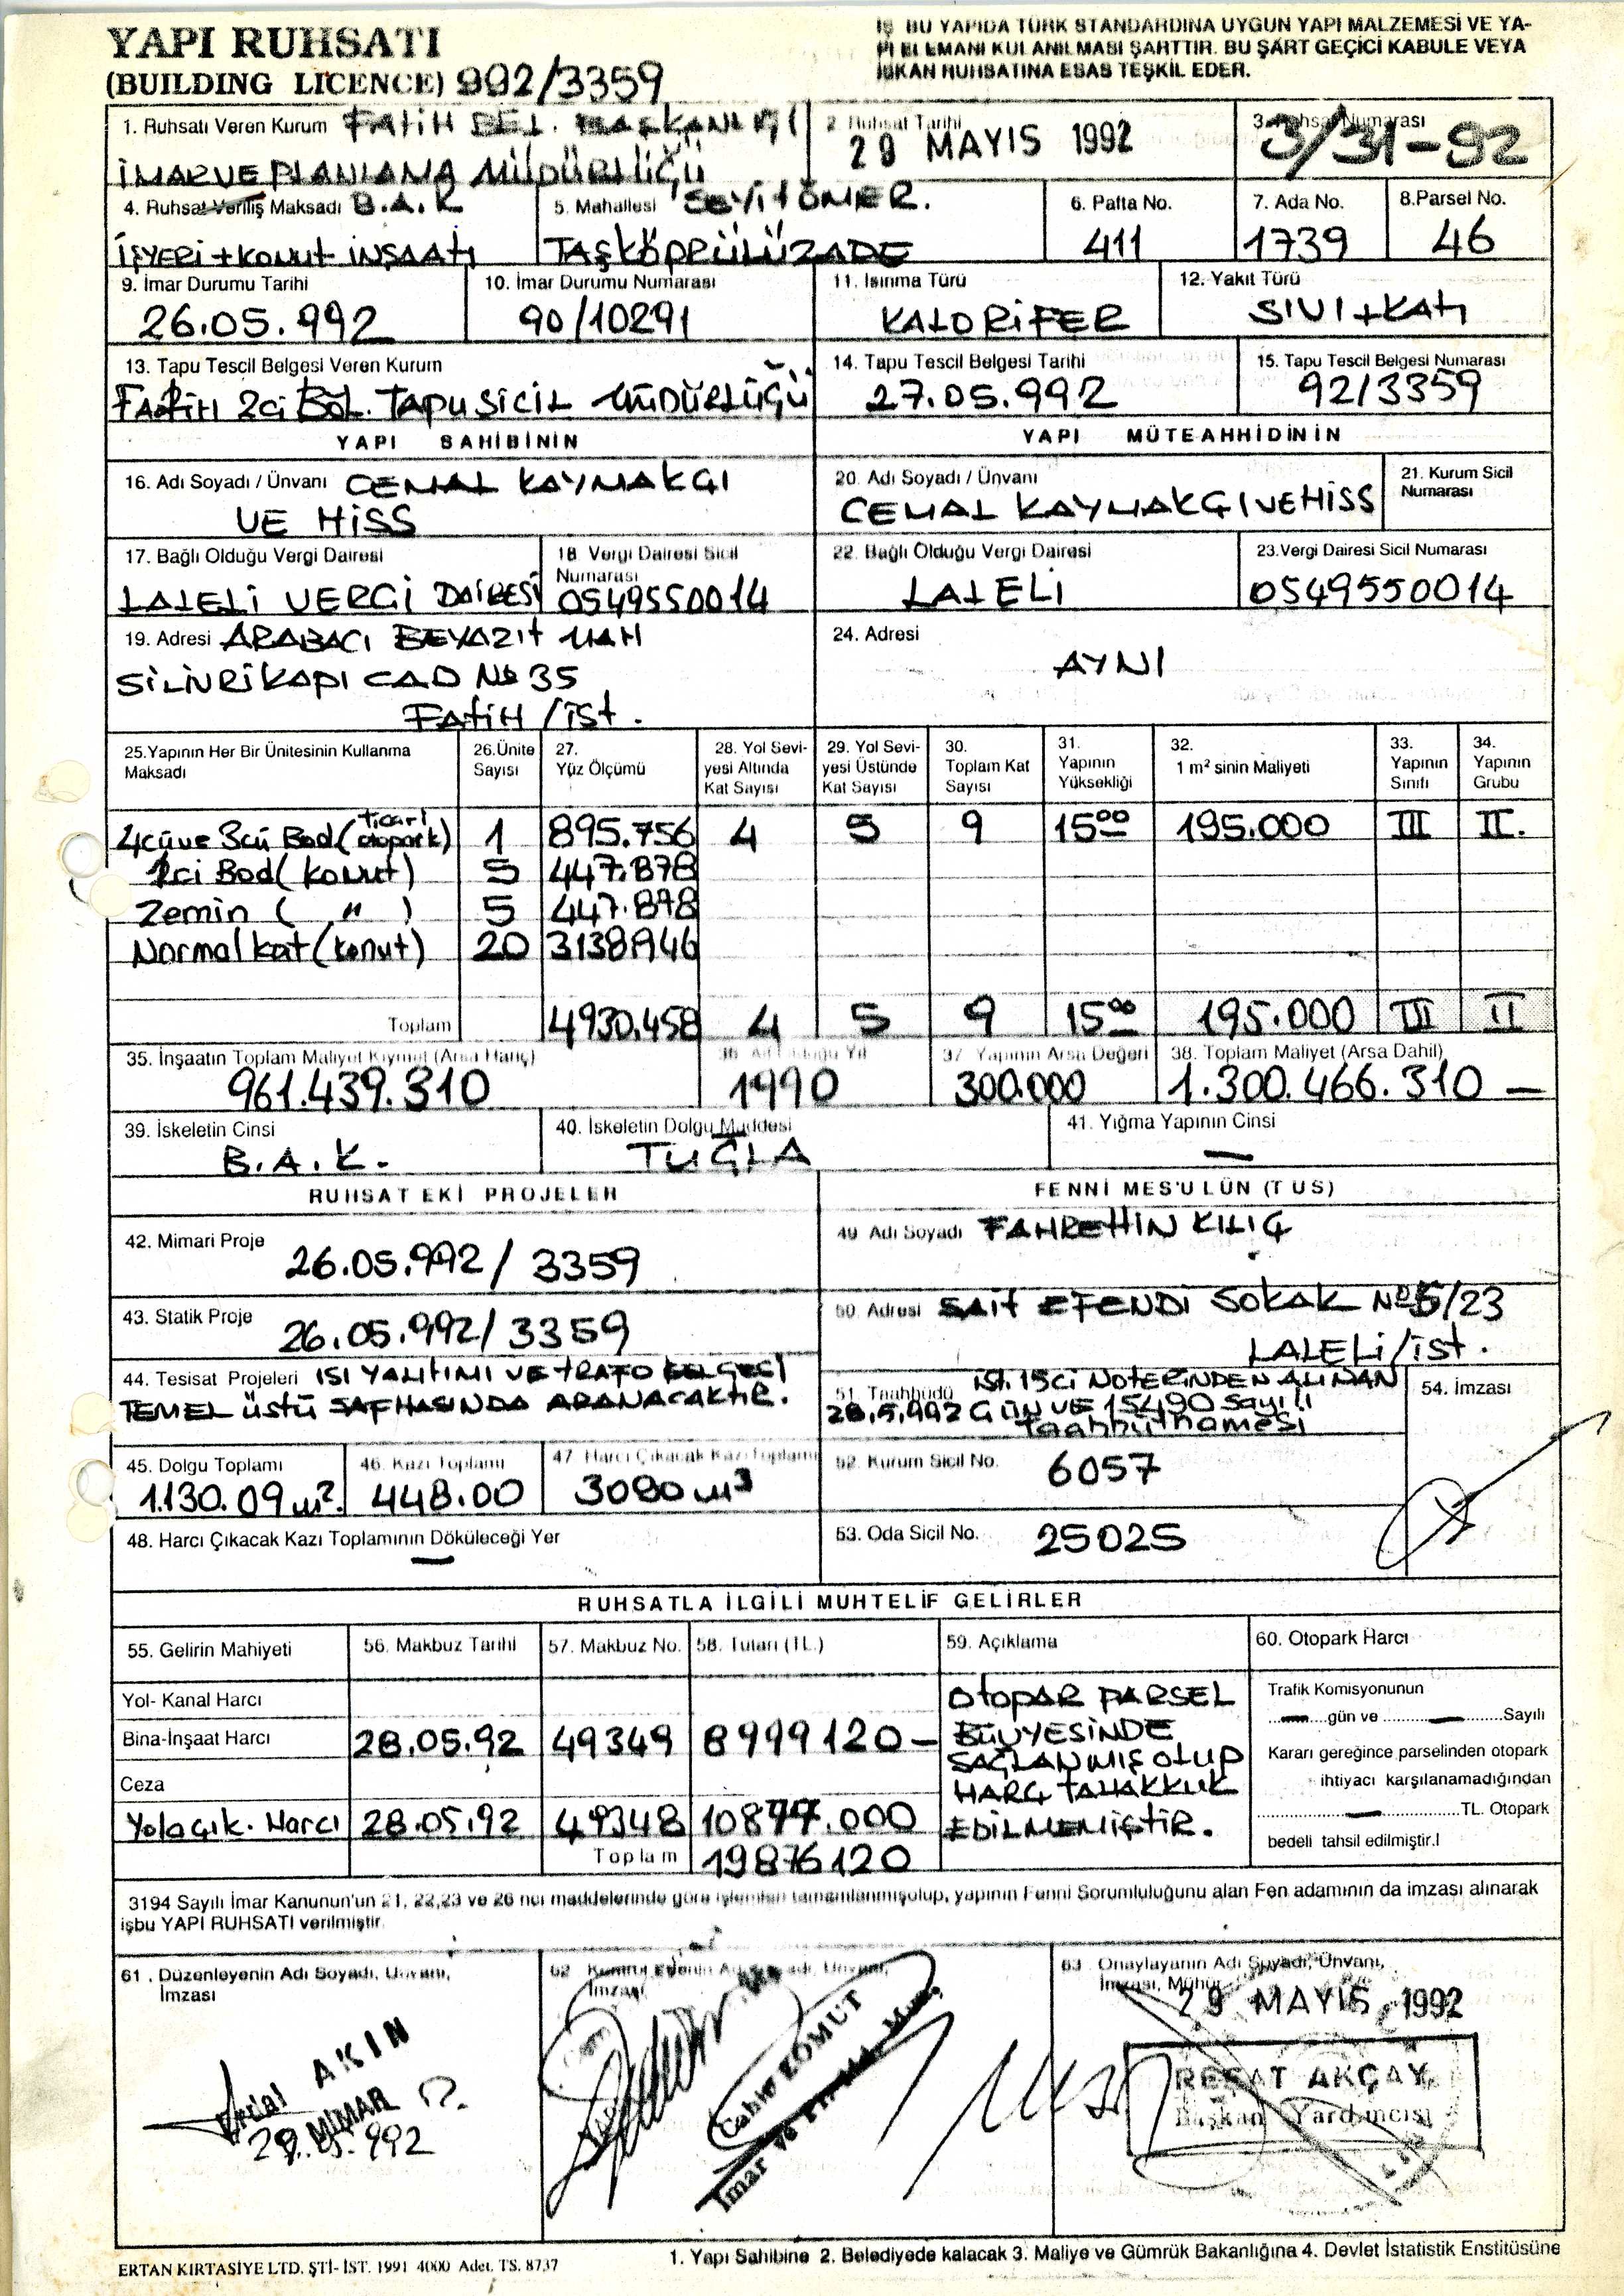 YAPI RUHSATI
(BUILDING LICENCE) 992/3359
İŞ BU YAPIDA TÜRK STANDARDINA UYGUN YAPI MALZEMESİ VE YA-
PI ELEMANI KULANILMASI ŞARTTIR. BU ŞART GEÇİCİ KABULE VEYA
İSKAN RUHSATINA ESAS TEŞKİL EDER.
1. Ruhsatı Veren Kurum FATİH BEL. BAŞKANLIĞI
İMAR VE PLANLAMA MÜDÜRLÜĞÜ
2. Ruhsat Tarihi
29 MAYIS 1992
3. Ruhsat Numarası
3/31-92
4. Ruhsat Veriliş Maksadı B.A.K
İŞYERİ+KONUT İNŞAATI
5. Mahallesi SEYİTÖMER.
TAŞKÖPRÜLÜZADE
6. Pafta No.
411
7. Ada No.
1739
8.Parsel No.
46
9. İmar Durumu Tarihi
26.05.992
10. İmar Durumu Numarası
90/10291
11. Isınma Türü
KALORİFER
12. Yakıt Türü
SIVI+KATI
13. Tapu Tescil Belgesi Veren Kurum
FATİH 2ci BÖL. TAPU SİCİL MÜDÜRLÜĞÜ
14. Tapu Tescil Belgesi Tarihi
27.05.992
15. Tapu Tescil Belgesi Numarası
92/3359
YAPI SAHİBİNİN
YAPI MÜTEAHHİDİNİN
16. Adı Soyadı / Ünvanı CEMAL KAYMAKÇI
VE HİSS
20. Adı Soyadı / Ünvanı
CEMAL KAYMAKÇI VE HİSS
21. Kurum Sicil
Numarası
17. Bağlı Olduğu Vergi Dairesi
LALELİ VERGİ DAİRESİ
18. Vergi Dairesi Sicil
Numarası
0549550014
22. Bağlı Olduğu Vergi Dairesi
LALELİ
23.Vergi Dairesi Sicil Numarası
0549550014
19. Adresi ARABACI BEYAZIT MAH
SİLİVRİKAPI CAD No 35
FATİH / İST.
24. Adresi
AYNI
25.Yapının Her Bir Ünitesinin Kullanma
Maksadı
26.Ünite
Sayısı
27.
Yüz Ölçümü
28. Yol Sevi-
yesi Altında
Kat Sayısı
29. Yol Sevi-
yesi Üstünde
Kat Sayısı
30.
Toplam Kat
Sayısı
31.
Yapının
Yüksekliği
32.
1 m² sinin Maliyeti
33.
Yapının
Sınıfı
34.
Yapının
Grubu
4cü ve 3cü Bod (ticari otopark) 1 895.756 4 5 9 15.00 195.000 III II.
1ci Bod (konut) 5 447.878
Zemin ( " ) 5 447.878
Normal kat (konut) 20 3138.946
Toplam 4930.458 4 5 9 15.00 195.000 III II
35. İnşaatın Toplam Maliyet Kıymet (Arsa Hariç)
961.439.310
1990
37. Yapının Arsa Değeri
300.000
38. Toplam Maliyet (Arsa Dahil)
1.300.466.310 —
39. İskeletin Cinsi
B.A.K.
40. İskeletin Dolgu Maddesi
TUĞLA
41. Yığma Yapının Cinsi
—
RUHSAT EKİ PROJELER
FENNİ MES'ULÜN (T U S)
42. Mimari Proje
26.05.992 / 3359
49. Adı Soyadı FAHRETTİN KILIÇ
43. Statik Proje
26.05.992 / 3359
50. Adresi SAİT EFENDİ SOKAK No 5/23
LALELİ / İST.
44. Tesisat Projeleri ISI YALITIMI VE TRAFO BELGESİ
TEMEL ÜSTÜ SAFHASINDA ARANACAKTIR.
51. Taahhüdü İST. 15Ci NOTERİNDEN ALINAN
28.5.992 GÜN VE 15490 Sayılı
Taahhütnamesi
54. İmzası
45. Dolgu Toplamı
1.130.09 m².
46. Kazı Toplamı
448.00
47. Harcı Çıkacak Kazı Toplamı
3080 m³
52. Kurum Sicil No.
6057
48. Harcı Çıkacak Kazı Toplamının Döküleceği Yer
—
53. Oda Sicil No.
25025
RUHSATLA İLGİLİ MUHTELİF GELİRLER
55. Gelirin Mahiyeti
56. Makbuz Tarihi
57. Makbuz No.
58. Tutarı (TL.)
59. Açıklama
60. Otopark Harcı
Yol- Kanal Harcı
Bina-İnşaat Harcı 28.05.92 49349 8999120 —
Ceza
Yola çık. Harcı 28.05.92 49348 10877.000
Toplam 19876120
OTOPAR PARSEL
BÜNYESİNDE
SAĞLANMIŞ OLUP
HARÇ TAHAKKUK
EDİLMEMİŞTİR.
Trafik Komisyonunun
........gün ve ....................Sayılı
Kararı gereğince parselinden otopark
ihtiyacı karşılanamadığından
....................TL. Otopark
bedeli tahsil edilmiştir.
3194 Sayılı İmar Kanunun'un 21, 22,23 ve 26 ncı maddelerinde göre işlemleri tamamlanmışolup, yapının Fenni Sorumluluğunu alan Fen adamının da imzası alınarak
işbu YAPI RUHSATI verilmiştir
61 . Düzenleyenin Adı Soyadı, Ünvanı,
İmzası
Erdal AKIN
MİMAR
29.5.992
62. Kontrol Edenin Adı Soyadı, Ünvanı,
İmzası
Cahit KOMUT
İmar ve Planlama Müd.
63 Onaylayanın Adı Soyadı, Ünvanı,
İmzası, Mühür
29 MAYIS 1992
REŞAT AKÇAY
Başkan Yardımcısı
ERTAN KIRTASİYE LTD. ŞTİ- İST. 1991 4000 Adet. TS. 8737
1. Yapı Sahibine 2. Belediyede kalacak 3. Maliye ve Gümrük Bakanlığına 4. Devlet İstatistik Enstitüsüne